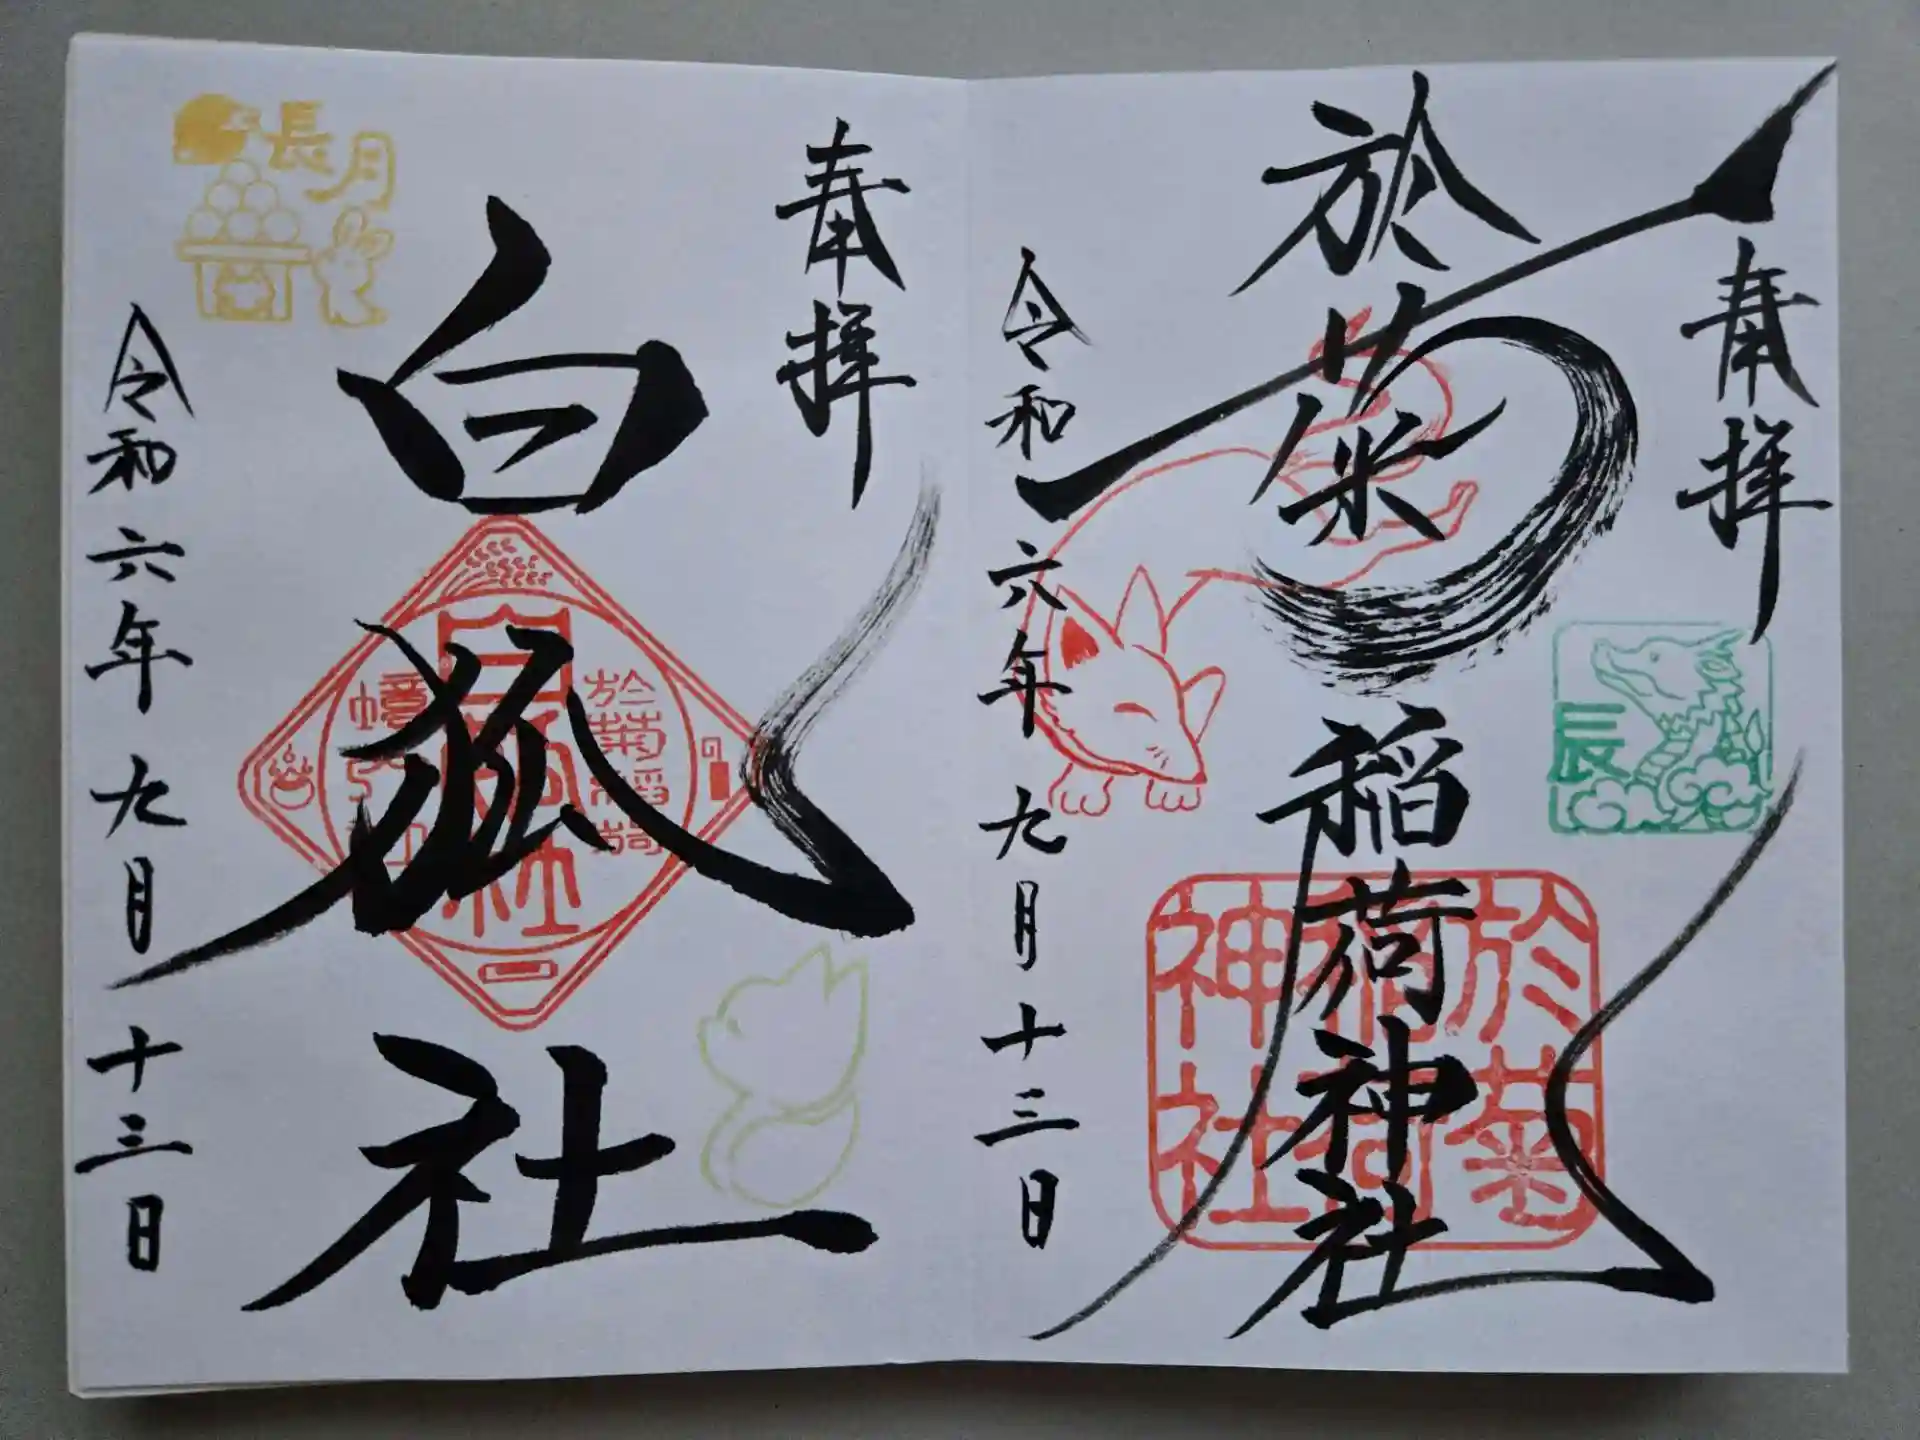 奉拝
於菊稲荷神社
辰
於菊
稲荷
神社
令和六年九月十三日
奉拝
白狐社
於菊稲荷
白狐社
長月
令和六年九月十三日